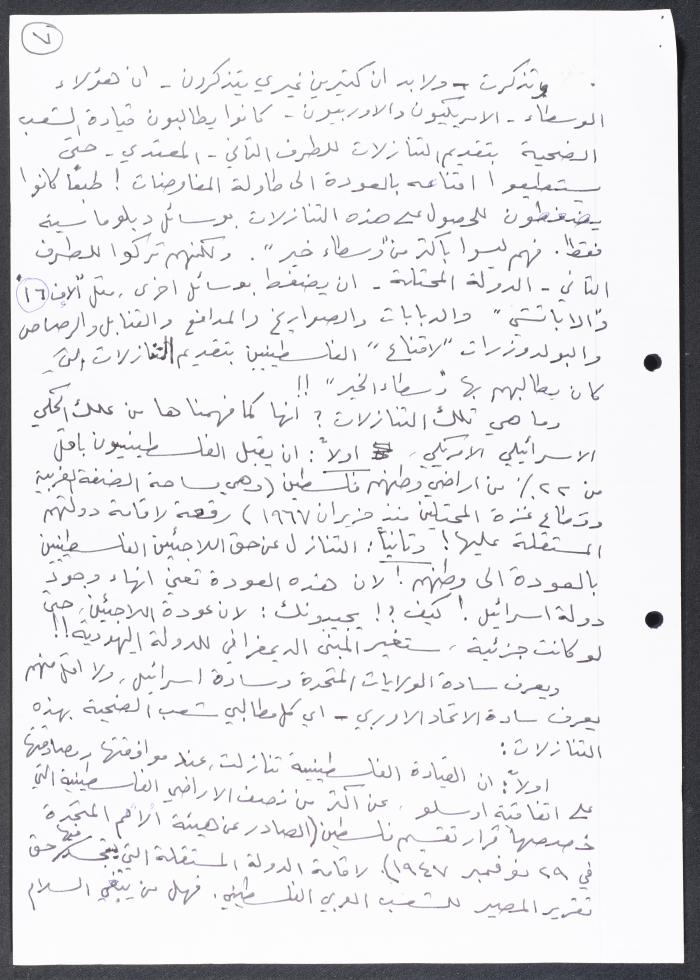 ٧
وتذكرت - ولا بد ان كثيرين غيري يتذكرون - ان هؤلاء
الوسطاء - الامريكيون والاوربيون - كانوا يطالبون قيادة الشعب
الضحية بتقديم التنازلات للطرف الثاني - المعتدي - حتى
يستطيعوا اقناعه بالعودة الى طاولة المفاوضات! طبعًا كانوا
يضغطون للحصول على هذه التنازلات بوسائل دبلوماسية
فقط. فهم ليسوا بأكثر من "وسطاء خير". ولكنهم تركوا للطرف
الثاني - الدولة المحتلة - ان يضغط بوسائل اخرى، مثل "الإف ١٦
و"الاباتشي" والدبابات والصواريخ والمدافع والقنابل والرصاص
والبولدوزرات "لاقناع" الفلسطينيين بتقديم التنازلات التي
كان يطالبهم بها "وسطاء الخير"!!
وما هي تلك التنازلات؟ انها كما فهمناها من عملك الحكي
الاسرائيلي الامريكي، اولاً: ان يقبل الفلسطينيون بأقل
من ٢٢٪ من اراضي وطنهم فلسطين (وهي مساحة الضفة الغربية
وقطاع غزة المحتلين منذ حزيران ١٩٦٧) رقعة لاقامة دولتهم
المستقلة عليها! وثانياً: التنازل عن حق اللاجئين الفلسطينيين
بالعودة الى وطنهم! لان هذه العودة تعني انهاء وجود
دولة اسرائيل! كيف؟! يجيبونك: لان عودة اللاجئين، حتى
لو كانت جزئية، ستغير المبنى الديمغرافي للدولة اليهودية!!
ويعرف سادة الولايات المتحدة وسادة اسرائيل، ولا اقل منهم
يعرف سادة الاتحاد الاوربي - اي كل مطالبي شعب الضحية بهذه
التنازلات:
اولاً: ان القيادة الفلسطينية تنازلت، عند موافقتها ومصادقتها
على اتفاقية اوسلو، عن اكثر من نصف الاراضي الفلسطينية التي
خصصها قرار تقسيم فلسطين (الصادر عن هيئة الامم المتحدة
في ٢٩ نوفمبر ١٩٤٧) لاقامة الدولة المستقلة التي يتجسد فيها حق
تقرير المصير للشعب العربي الفلسطيني. فهل من يبتغي السلام